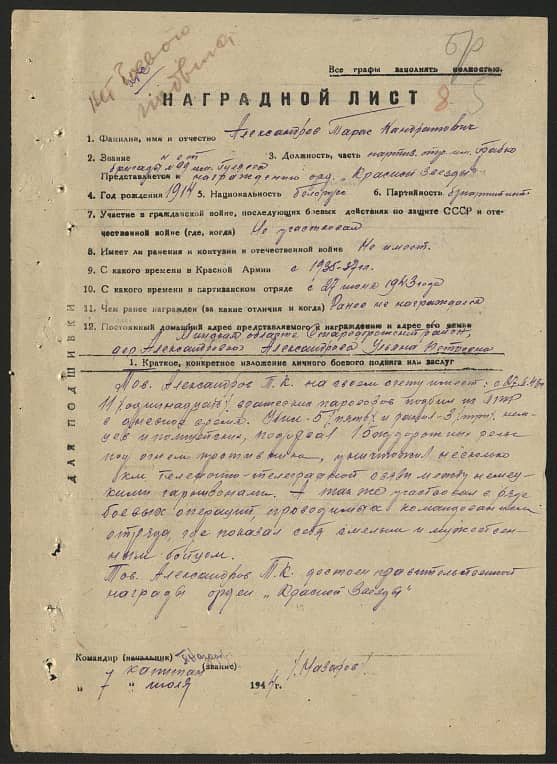 нет боевого
подвига
б/р
Все графы заполнять полностью.
НАГРАДНОЙ ЛИСТ 8
1. Фамилия, имя и отчество Александров Тарас Кондратович
2. Звание 3. Должность, часть партиз. отр. им.
бригады № 99 им.
Представляется к награждению орд. „Красной Звезды"
4. Год рождения 1914 5. Национальность белорус 6. Партийность
7. Участие в гражданской войне, последующих боевых действиях по защите СССР и оте-
чественной войне (где, когда) Не участвовал
8. Имеет ли ранения и контузии в отечественной войне Не имеет.
9. С какого времени в Красной Армии с 1935-37 гг.
10. С какого времени в партизанском отряде с 27 июня 1943 года
11. Чем ранее награжден (за какие отличия и когда) Ранее не награждался
12. Постоянный домашний адрес представляемого к награждению и адрес его семьи
Минская область Стародорожский район,
дер. Александрова Ульяна
1. Краткое, конкретное изложение личного боевого подвига или заслуг
Тов. Александров Т.К. на своем счету имеет:
11 (одиннадцать)
в дневное время. Убил-5 (пять) и ранил-3 (три) нем-
цев и подорвал рельс
под огнем противника, уничтожил несколько
км телефоно-телеграфной связи между немец-
кими гарнизонами. А также участвовал в ряде
боевых операций проводимых командованием
отряда, где показал себя смелым и мужествен-
ным бойцом.
Тов. Александров Т.К. достоен правительственной
награды орден „Красной Звезды"
ДЛЯ ПОДШИВКИ
Командир (начальник)
капитан (звание) /Назаров/
„ 7 " июля 1944 г.